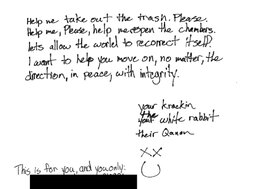 Help me take out the trash. Please.
Help me, Please, help me reopen the chambers.
Lets allow the world to recorrect itself.
I want to help you move on, no matter, the
direction, in peace, with integrity.
your krackin
the white rabbit
their Qanon
XX
This is for you, and you only: